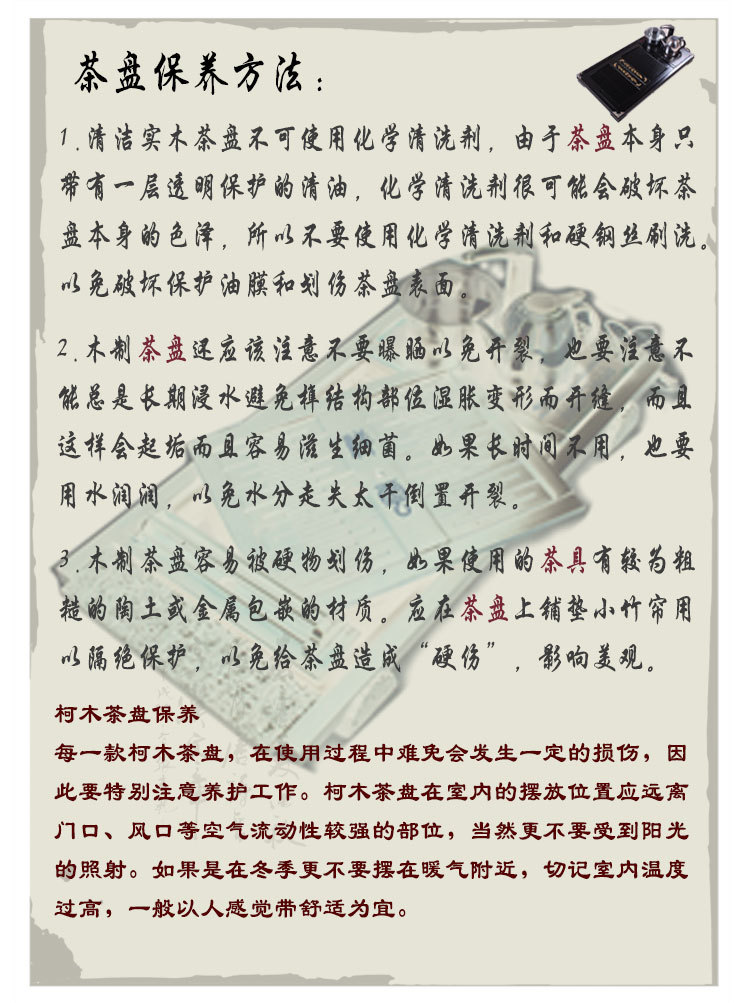 茶盘保养方法：
1.清洁实木茶盘不可使用化学清洗剂，由于茶盘本身只
带有一层透明保护的清油，化学清洗剂很可能会破坏茶
盘本身的色泽，所以不要使用化学清洗剂和硬钢丝刷洗。
以免破坏保护油膜和划伤茶盘表面。
2.木制茶盘还应该注意不要曝晒以免开裂，也要注意不
能总是长期浸水避免榫结构部位湿胀变形而开缝，而且
这样会起垢而且容易滋生细菌。如果长时间不用，也要
用水润润，以免水分走失太干倒置开裂。
3.木制茶盘容易被硬物划伤，如果使用的茶具有较为粗
糙的陶土或金属包嵌的材质。应在茶盘上铺垫小竹帘用
以隔绝保护，以免给茶盘造成“硬伤”，影响美观。
柯木茶盘保养
每一款柯木茶盘，在使用过程中难免会发生一定的损伤，因
此要特别注意养护工作。柯木茶盘在室内的摆放位置应远离
门口、风口等空气流动性较强的部位，当然更不要受到阳光
的照射。如果是在冬季更不要摆在暖气附近，切记室内温度
过高，一般以人感觉带舒适为宜。